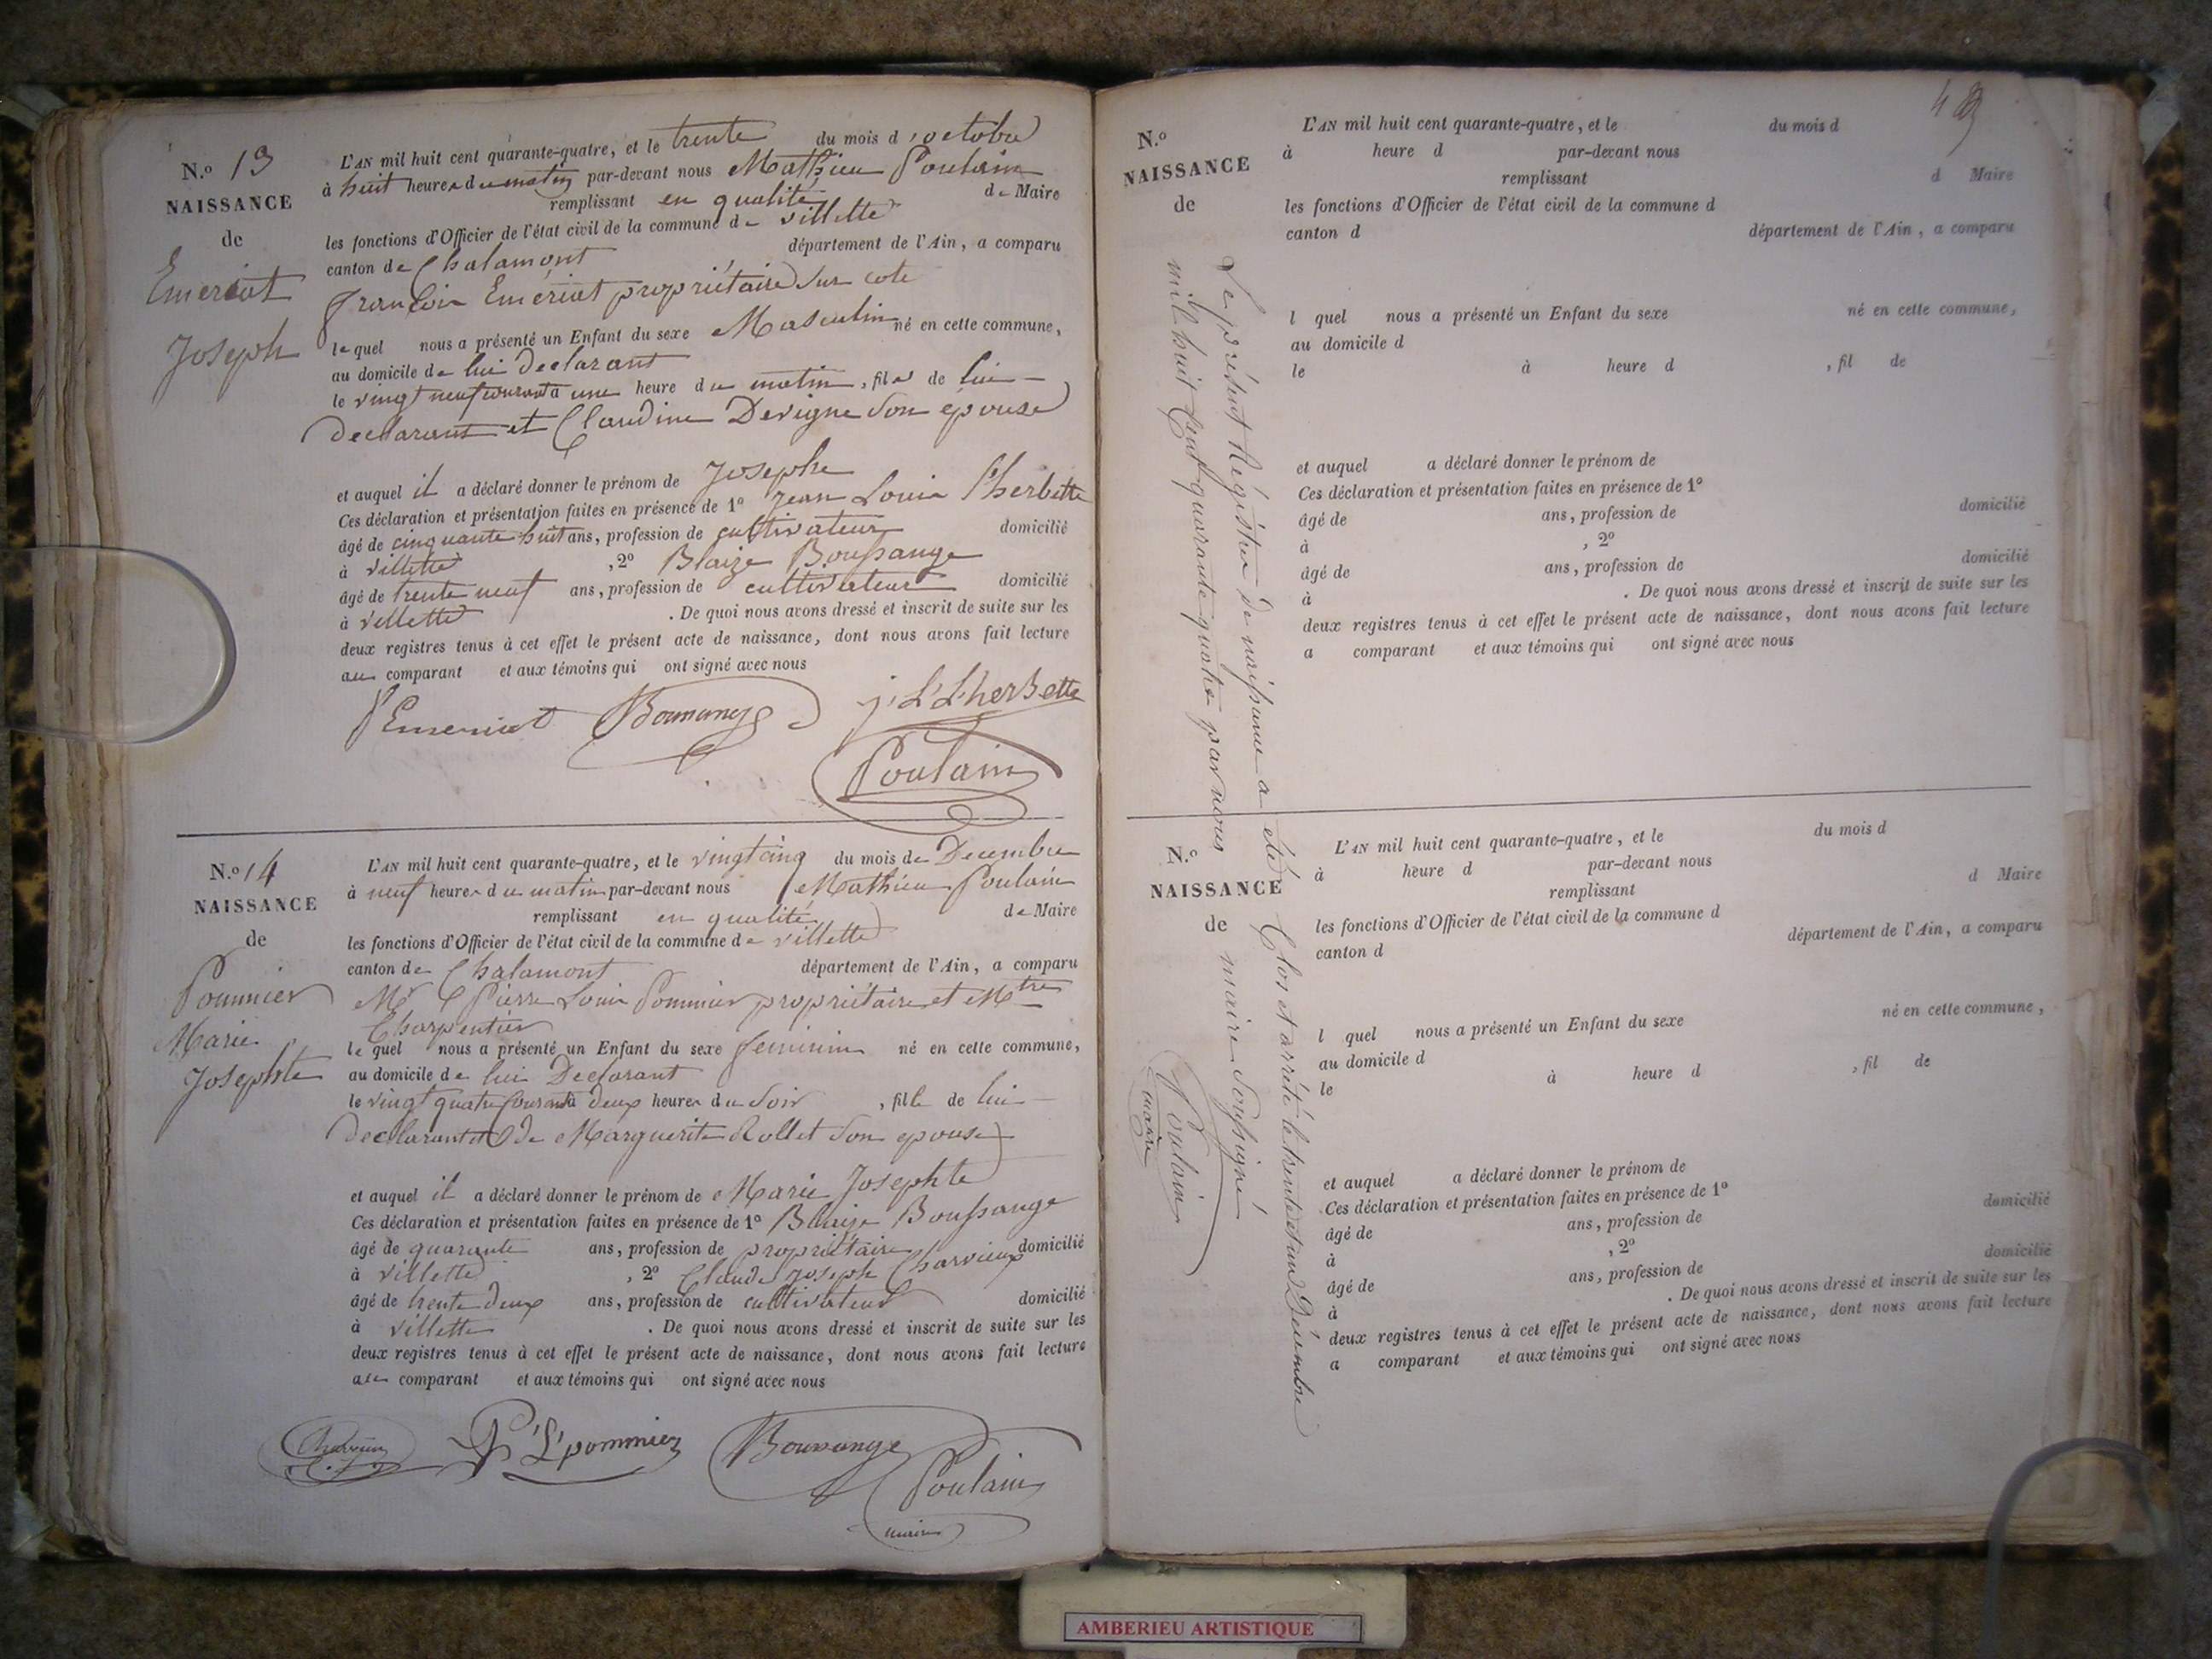 N.º 13
NAISSANCE
de
Emeriat
Joseph
L'AN mil huit cent quarante-quatre, et le trente du mois d'octobre
à huit heures du matin par-devant nous Mathieu Poulain
remplissant en qualité de Maire
les fonctions d'Officier de l'état civil de la commune de villette
canton de Chalamont département de l'Ain, a comparu
françois Emériat propriétaire sur cote
lequel nous a présenté un Enfant du sexe Masculin né en cette commune,
au domicile de lui declarant
le vingt neuf courant à une heure du matin, fils de lui
declarant et Claudine Devigne son épouse
et auquel il a déclaré donner le prénom de Josephe
Ces déclaration et présentation faites en présence de 1º Jean Louis L'herbette
âgé de cinquante huit ans, profession de cultivateur domicilié
à villette , 2º Blaize Boussange
âgé de trente neuf ans, profession de cultivateur domicilié
à villette . De quoi nous avons dressé et inscrit de suite sur les
deux registres tenus à cet effet le présent acte de naissance, dont nous avons fait lecture
au comparant et aux témoins qui ont signé avec nous
f Emeriat Boussange j. L. L'herbette
Poulain
N.º 14
NAISSANCE
de
Pommier
Marie
Josephte
L'AN mil huit cent quarante-quatre, et le vingt cinq du mois de Decembre
à neuf heures du matin par-devant nous Mathieu Poulain
remplissant en qualité de Maire
les fonctions d'Officier de l'état civil de la commune de villette
canton de Chalamont département de l'Ain, a comparu
Mr Pierre Louis Pommier propriétaire et Mtre
Charpentier
le quel nous a présenté un Enfant du sexe feminin né en cette commune,
au domicile de lui Declarant
le vingt quatre courant à deux heures du soir , fille de lui
declarant et de Marguerite Rollet son epouse
et auquel il a déclaré donner le prénom de Marie Josephte
Ces déclaration et présentation faites en présence de 1º Blaize Boussange
âgé de quarante ans, profession de propriétaire domicilié
à villette , 2º Claude Joseph Charvieux
âgé de trente deux ans, profession de cultivateur domicilié
à villette . De quoi nous avons dressé et inscrit de suite sur les
deux registres tenus à cet effet le présent acte de naissance, dont nous avons fait lecture
au comparant et aux témoins qui ont signé avec nous
Charvieux P. L. pommier Boussange
Poulain
maire
N.º
NAISSANCE
de
L'AN mil huit cent quarante-quatre, et le du mois d
à heure d par-devant nous
remplissant d Maire
les fonctions d'Officier de l'état civil de la commune d
canton d département de l'Ain, a comparu
l quel nous a présenté un Enfant du sexe né en cette commune,
au domicile d
le à heure d , fil de
et auquel a déclaré donner le prénom de
Ces déclaration et présentation faites en présence de 1º
âgé de ans, profession de domicilié
à , 2º
âgé de ans, profession de domicilié
à . De quoi nous avons dressé et inscrit de suite sur les
deux registres tenus à cet effet le présent acte de naissance, dont nous avons fait lecture
a comparant et aux témoins qui ont signé avec nous
Le présent Régistre de naissance a eté Clos et arrêté le trente et un Décembre
mil huit Cent quarante quatre par nous maire soussigné
Poulain
maire
N.º
NAISSANCE
de
L'AN mil huit cent quarante-quatre, et le du mois d
à heure d par-devant nous
remplissant d Maire
les fonctions d'Officier de l'état civil de la commune d
canton d département de l'Ain, a comparu
l quel nous a présenté un Enfant du sexe né en cette commune,
au domicile d
le à heure d , fil de
et auquel a déclaré donner le prénom de
Ces déclaration et présentation faites en présence de 1º
âgé de ans, profession de domicilié
à , 2º
âgé de ans, profession de domicilié
à . De quoi nous avons dressé et inscrit de suite sur les
deux registres tenus à cet effet le présent acte de naissance, dont nous avons fait lecture
a comparant et aux témoins qui ont signé avec nous
AMBERIEU ARTISTIQUE